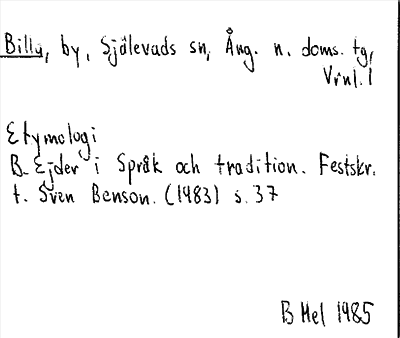 Billa, by, Själevads sn, Ång. n. doms. tg,
Vrnl. l
Etymologi
B. Ejder i Språk och tradition. Festskr.
t. Sven Benson. (1983) s. 37
B Hel 1985